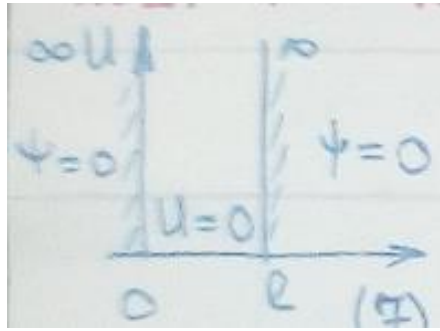 ∞ U ∞
ψ=0 ψ=0
U=0
0 ℓ (I)